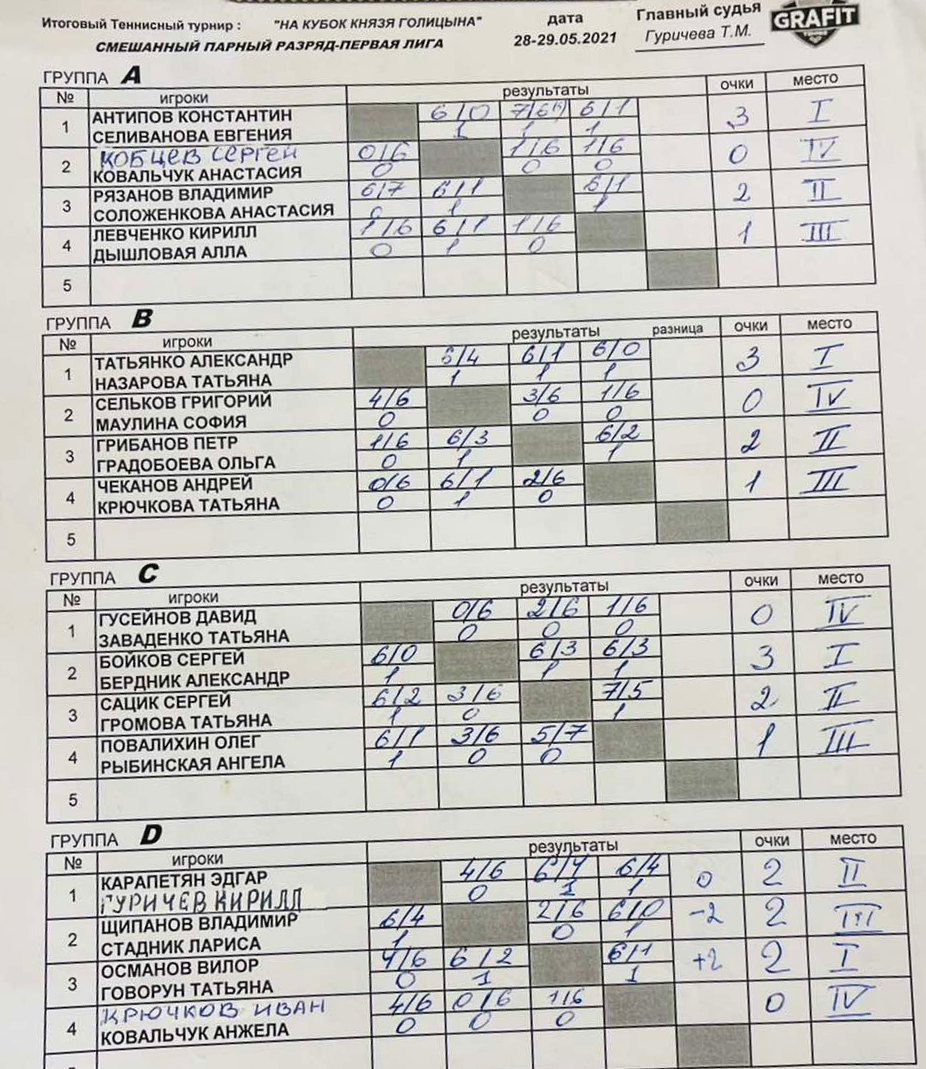 Итоговый Теннисный турнир : "НА КУБОК КНЯЗЯ ГОЛИЦЫНА" дата Главный судья GRAFIT
СМЕШАННЫЙ ПАРНЫЙ РАЗРЯД-ПЕРВАЯ ЛИГА 28-29.05.2021 Гуричева Т.М.
ГРУППА A
№ игроки результаты очки место
1 АНТИПОВ КОНСТАНТИН 6/0 7/6 6/1 3 I
СЕЛИВАНОВА ЕВГЕНИЯ 1 1 1
2 КОБЦЕВ СЕРГЕЙ 0/6 1/6 1/6 0 IV
КОВАЛЬЧУК АНАСТАСИЯ 0 0 0
3 РЯЗАНОВ ВЛАДИМИР 6/7 6/1 6/1 2 II
СОЛОЖЕНКОВА АНАСТАСИЯ 0 1 1
4 ЛЕВЧЕНКО КИРИЛЛ 1/6 6/1 1/6 1 III
ДЫШЛОВАЯ АЛЛА 0 1 0
5
ГРУППА B
№ игроки результаты разница очки место
1 ТАТЬЯНКО АЛЕКСАНДР 6/4 6/1 6/0 3 I
НАЗАРОВА ТАТЬЯНА 1 1 1
2 СЕЛЬКОВ ГРИГОРИЙ 4/6 3/6 1/6 0 IV
МАУЛИНА СОФИЯ 0 0 0
3 ГРИБАНОВ ПЕТР 1/6 6/3 6/2 2 II
ГРАДОБОЕВА ОЛЬГА 0 1 1
4 ЧЕКАНОВ АНДРЕЙ 0/6 6/1 2/6 1 III
КРЮЧКОВА ТАТЬЯНА 0 1 0
5
ГРУППА C
№ игроки результаты очки место
1 ГУСЕЙНОВ ДАВИД 0/6 2/6 1/6 0 IV
ЗАВАДЕНКО ТАТЬЯНА 0 0 0
2 БОЙКОВ СЕРГЕЙ 6/0 6/3 6/3 3 I
БЕРДНИК АЛЕКСАНДР 1 1 1
3 САЦИК СЕРГЕЙ 6/2 3/6 7/5 2 II
ГРОМОВА ТАТЬЯНА 1 0 1
4 ПОВАЛИХИН ОЛЕГ 6/1 3/6 5/7 1 III
РЫБИНСКАЯ АНГЕЛА 1 0 0
5
ГРУППА D
№ игроки результаты очки место
1 КАРАПЕТЯН ЭДГАР 4/6 6/4 6/4 0 2 II
ГУРИЧЕВ КИРИЛЛ 0 1 1
2 ЩИПАНОВ ВЛАДИМИР 6/4 2/6 6/0 -2 2 III
СТАДНИК ЛАРИСА 1 0 1
3 ОСМАНОВ ВИЛОР 4/6 6/2 6/1 +2 2 I
ГОВОРУН ТАТЬЯНА 0 1 1
4 КРЮЧКОВ ИВАН 4/6 0/6 1/6 0 IV
КОВАЛЬЧУК АНЖЕЛА 0 0 0